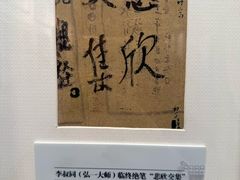 悲欣
交集
見觀經
李叔同（弘一大师）临终绝笔“悲欣交集”